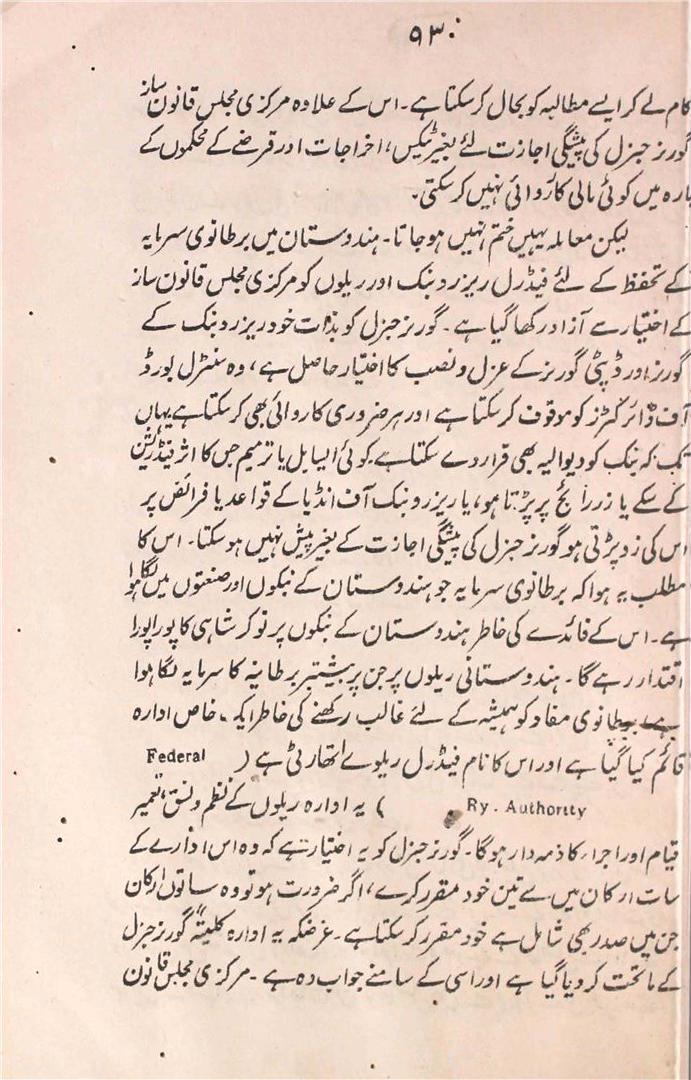 ۹۳۰
کام لے کر ایسے مطالبہ کو بحال کر سکتا ہے۔ اس کے علاوہ مرکزی مجلس قانون ساز
گورنر جنرل کی پیشگی اجازت لئے بغیر ٹیکس، اخراجات اور قرضے کے محکموں کے
بارہ میں کوئی مالی کاروائی نہیں کر سکتی۔
لیکن معاملہ یہیں ختم نہیں ہو جاتا۔ ہندوستان میں برطانوی سرمایہ
کے تحفظ کے لئے فیڈرل ریزرو بنک اور ریلوں کو مرکزی مجلس قانون ساز
کے اختیار سے آزاد رکھا گیا ہے۔ گورنر جنرل کو بذات خود ریزرو بنک کے
گورنر اور ڈپٹی گورنر کے عزل و نصب کا اختیار حاصل ہے، وہ سنٹرل بورڈ
آف ڈائرکٹرز کو موقوف کر سکتا ہے اور ہر ضروری کاروائی بھی کر سکتا ہے یہاں
تک کہ بنک کو دیوالیہ بھی قرار دے سکتا ہے۔ کوئی ایسا بل یا ترمیم جس کا اثر فیڈریشن
کے سکے یا زر رائج پر پڑتا ہو، یا ریزرو بنک آف انڈیا کے قواعد یا فرائض پر
اس کی زد پڑتی ہو گورنر جنرل کی پیشگی اجازت کے بغیر پیش نہیں ہو سکتا۔ اس کا
مطلب یہ ہوا کہ برطانوی سرمایہ جو ہندوستان کے بنکوں اور صنعتوں میں لگا ہوا
ہے۔ اس کے فائدے کی خاطر ہندوستان کے بنکوں پر نوکر شاہی کا پورا پورا
اقتدار رہے گا۔ ہندوستانی ریلوں پر جن پر بیشتر برطانیہ کا سرمایہ لگا ہوا
ہے برطانوی مفاد کو ہمیشہ کے لئے غالب رکھنے کی خاطر ایک خاص ادارہ
قائم کیا گیا ہے اور اس کا نام فیڈرل ریلوے اتھارٹی ہے ( Federal
Ry. Authority ) یہ ادارہ ریلوں کے نظم و نسق، تعمیر
قیام اور اجراء کا ذمہ دار ہوگا۔ گورنر جنرل کو یہ اختیار ہے کہ وہ اس ادارے کے
سات ارکان میں سے تین خود مقرر کرے، اگر ضرورت ہو تو وہ ساتوں ارکان
جن میں صدر بھی شامل ہے خود مقرر کر سکتا ہے۔ غرضکہ یہ ادارہ کلیتہً گورنر جنرل
کے ماتحت کر دیا گیا ہے اور اسی کے سامنے جواب دہ ہے۔ مرکزی مجلس قانون